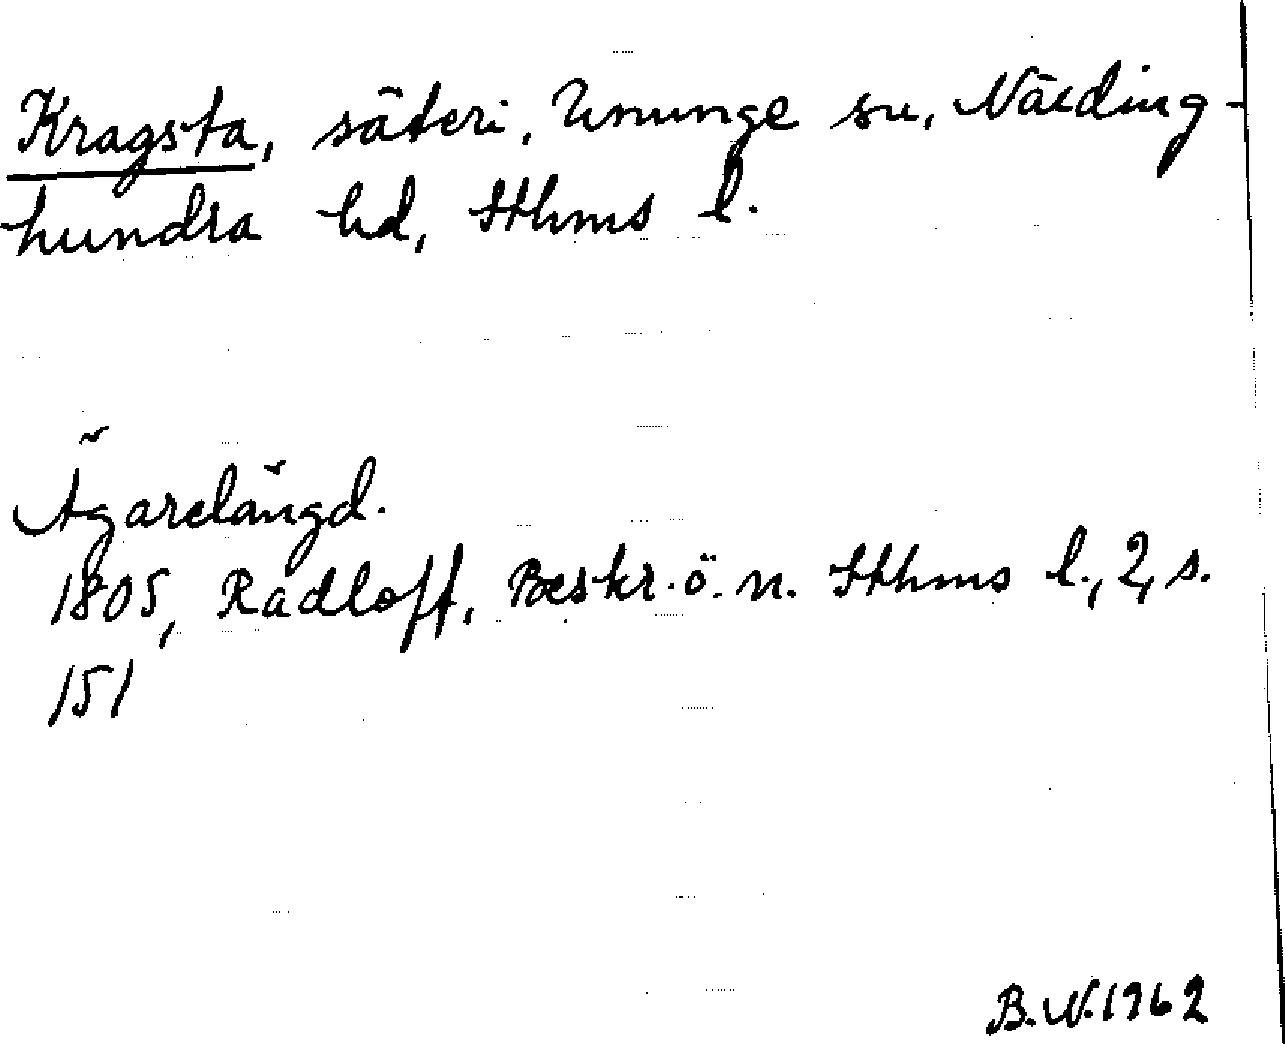 Kragsta, säteri, Ununge sn, Närding-
hundra hd, Sthms l.
Ägarelängd.
1805, Radloff, Beskr. ö. n. Sthms l., 2, s.
151
B.N.1962